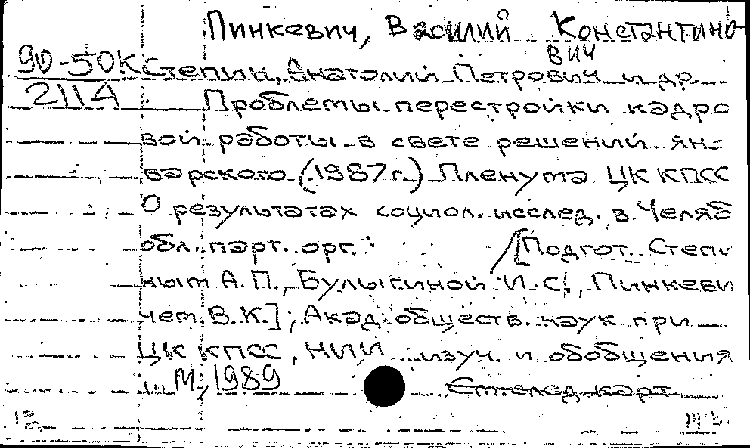 Пинкевич, Василий Константино-
вич
90-50К Степин, Анатолий Петрович и др.
211А Проблемы перестройки кадро
вой работы в свете решений ян-
варского (1987г.) Пленума ЦК КПСС
О результатах социол. исслед. в Челяб
обл. парт. орг. : / [Подгот. Степи
ным А.П., Булыгиной И.С., Пинкеви
чем В.К.]; Акад. обществ. наук при
ЦК КПСС, НИИ изуч. и обобщения
... М., 1989